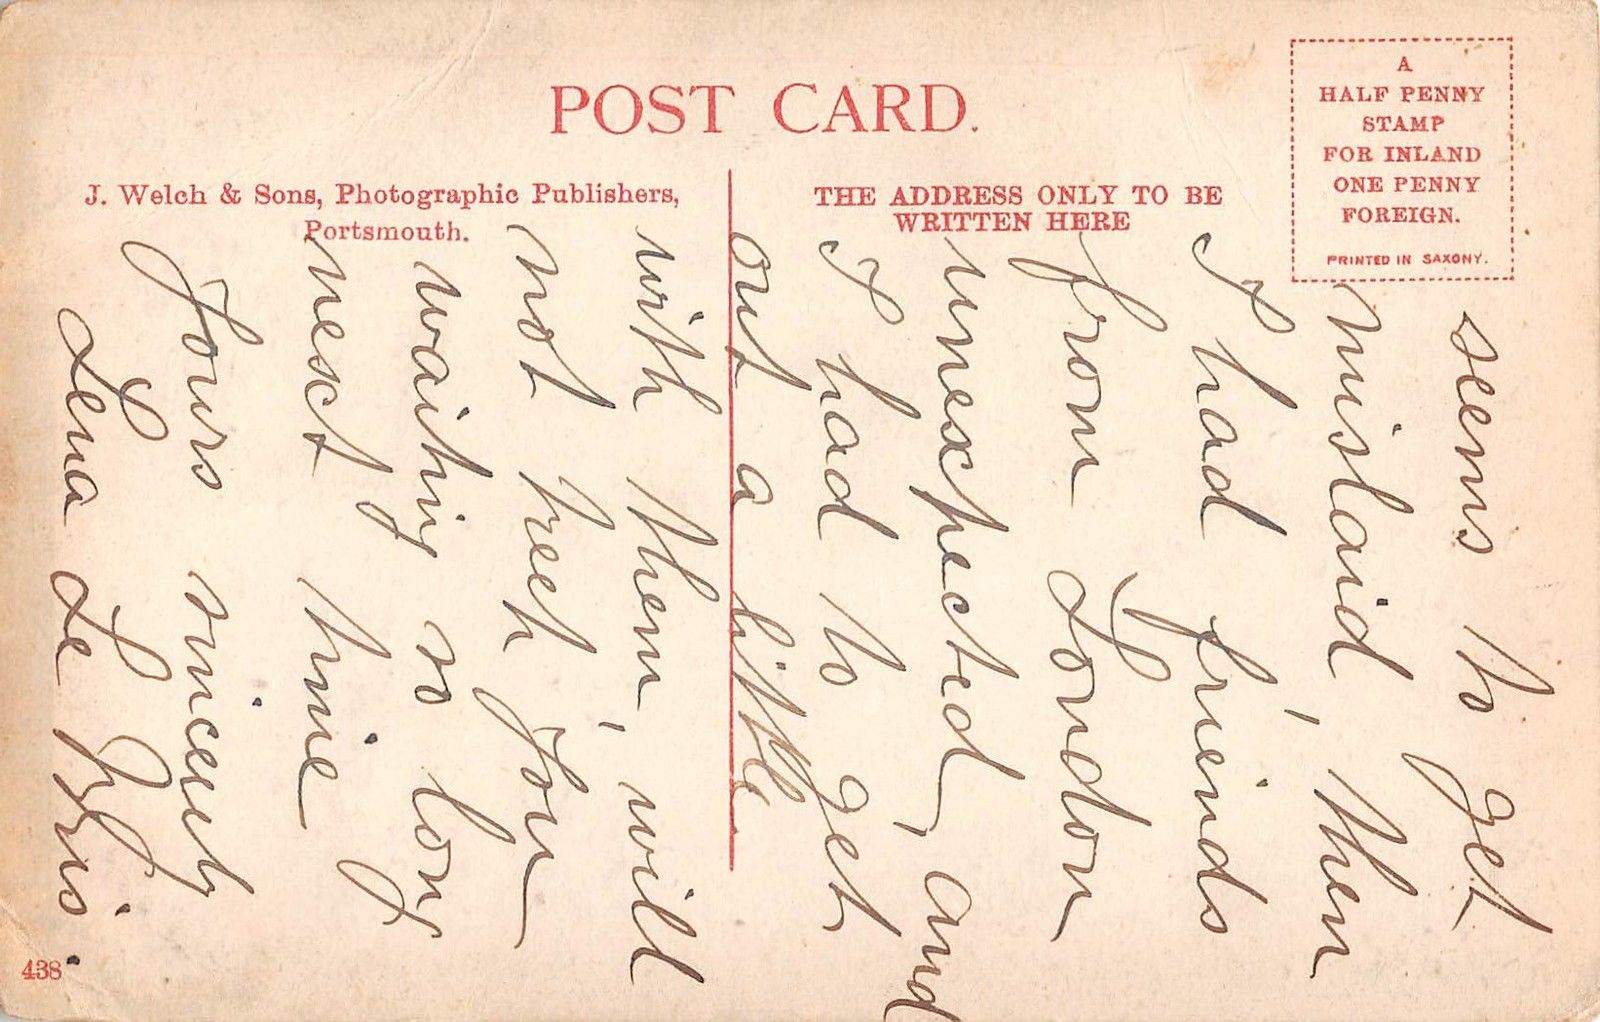 POST CARD.
J. Welch & Sons, Photographic Publishers,
Portsmouth.
THE ADDRESS ONLY TO BE
WRITTEN HERE
A
HALF PENNY
STAMP
FOR INLAND
ONE PENNY
FOREIGN.
PRINTED IN SAXONY.
seems to get
mislaid, then
I had friends
from London
unexpected, and
I had to get
out a little
with them, will
not keep you
waiting so long
next time
Yours sincerely
Lena Le
438